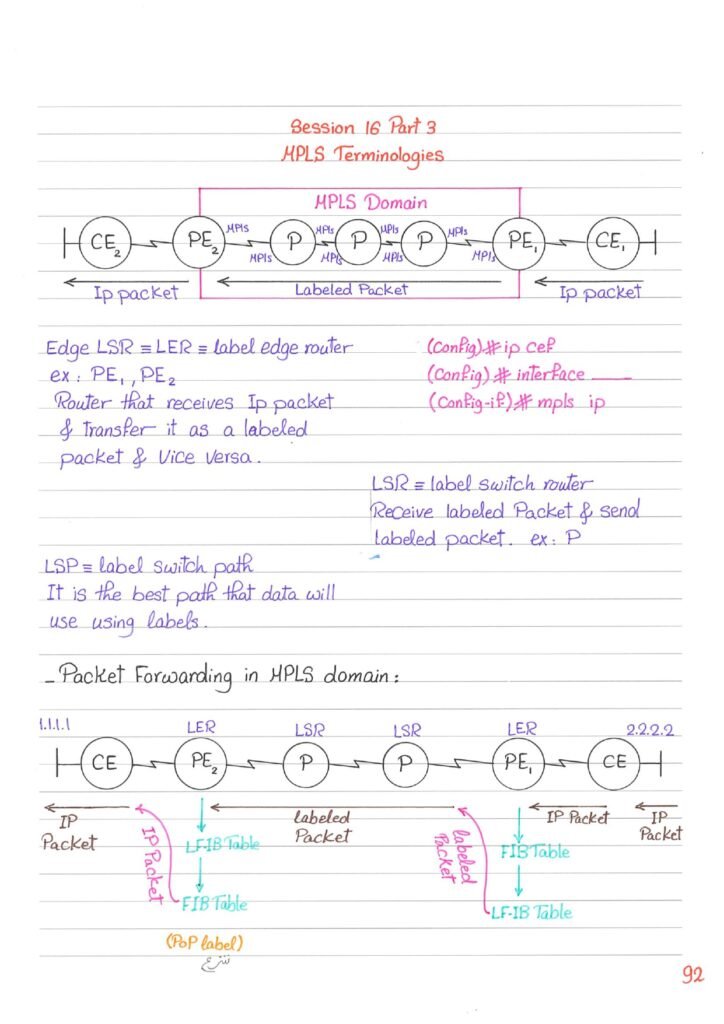 Session 16 Part 3
MPLS Terminologies
MPLS Domain
CE2 PE2 P P P PE1 CE1
MPls MPls MPls MPls
MPls MPls MPls MPls
Ip packet Labeled Packet Ip packet
Edge LSR ≡ LER ≡ label edge router
ex: PE1, PE2
Router that receives Ip packet
& Transfer it as a labeled
packet & Vice Versa.
(Config)# ip cef
(Config)# interface ____
(Config-if)# mpls ip
LSR ≡ label switch router
Receive labeled Packet & send
labeled packet. ex: P
LSP ≡ label switch path
It is the best path that data will
use using labels.
_ Packet Forwarding in MPLS domain:
1.1.1.1 LER LSR LSR LER 2.2.2.2
CE PE2 P P PE1 CE
IP Packet
IP Packet
labeled Packet
labeled Packet
IP Packet
IP Packet
LF-IB Table
FIB Table
FIB Table
LF-IB Table
(PoP label)
92